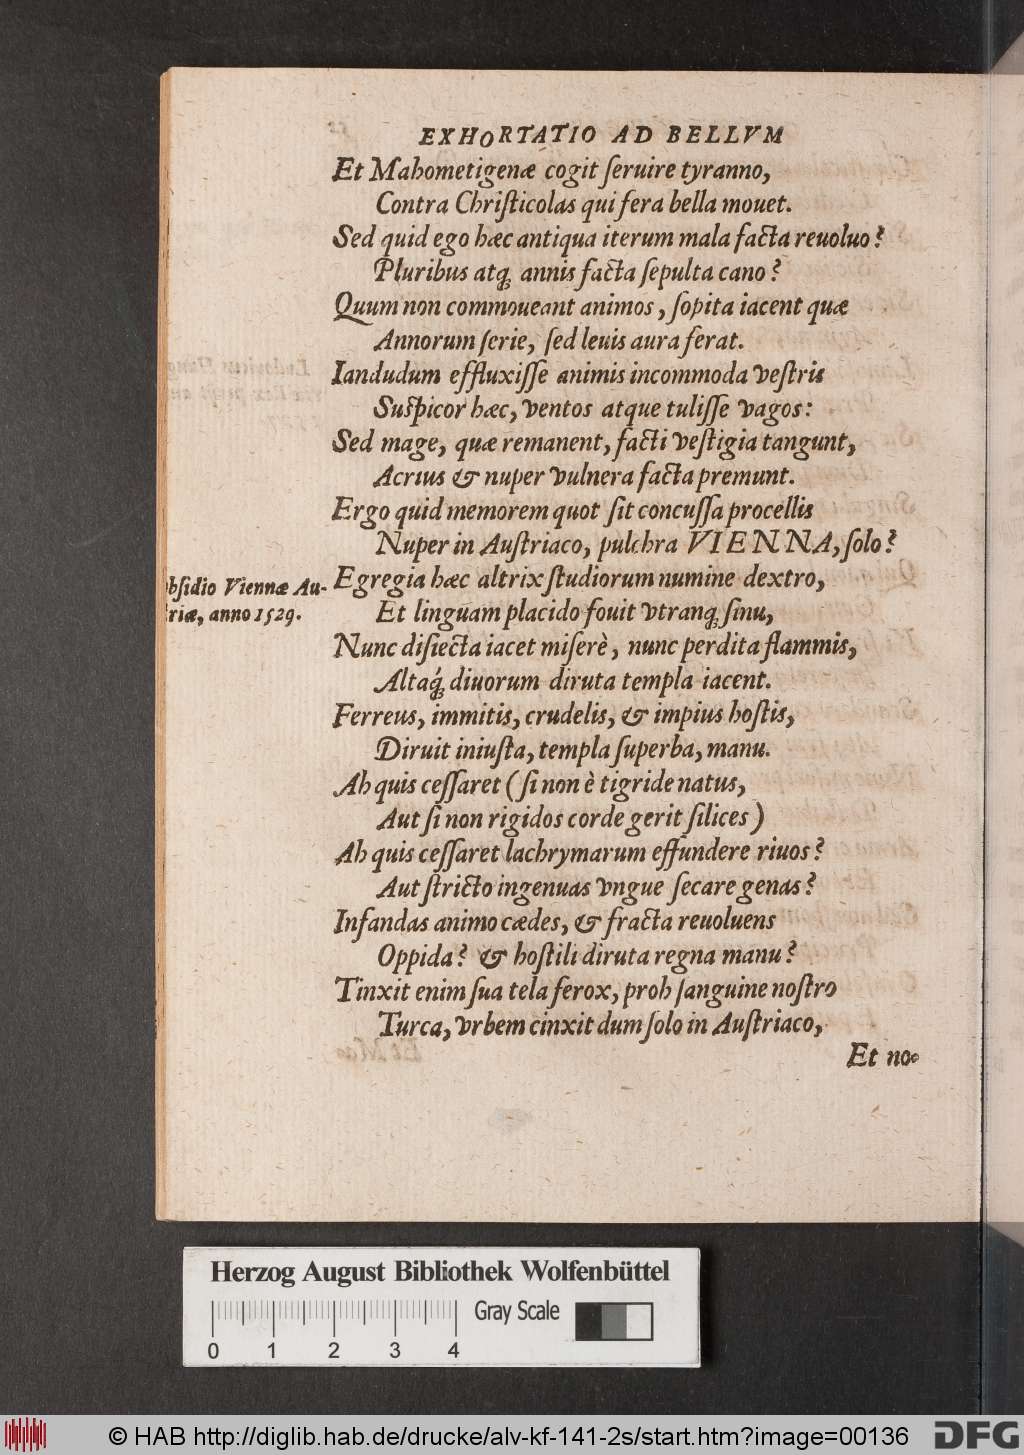 EXHORTATIO AD BELLVM
Et Mahometigenæ cogit ſeruire tyranno,
Contra Chriſticolas qui fera bella mouet.
Sed quid ego hæc antiqua iterum mala facta reuoluo?
Pluribus atq́; annis facta ſepulta cano?
Quum non commoueant animos, ſopita iacent quæ
Annorum ſerie, ſed leuis aura ferat.
Iandudum effluxiſſe animis incommoda veſtris
Suſpicor hæc, ventos atque tuliſſe vagos:
Sed mage, quæ remanent, facti veſtigia tangunt,
Acrius & nuper vulnera facta premunt.
Ergo quid memorem quot ſit concuſſa procellis
Nuper in Auſtriaco, pulchra VIENNA, ſolo?
Egregia hæc altrix ſtudiorum numine dextro,
bſidio Viennæ Au-
riæ, anno 1529.
Et linguam placido fouit vtranq; ſinu,
Nunc diſiecta iacet miſerè, nunc perdita flammis,
Altaq́; diuorum diruta templa iacent.
Ferreus, immitis, crudelis, & impius hoſtis,
Diruit iniuſta, templa ſuperba, manu.
Ah quis ceſſaret (ſi non è tigride natus,
Aut ſi non rigidos corde gerit ſilices)
Ah quis ceſſaret lachrymarum effundere riuos?
Aut ſtricto ingenuas vngue ſecare genas?
Infandas animo cædes, & fracta reuoluens
Oppida? & hoſtili diruta regna manu?
Tinxit enim ſua tela ferox, proh ſanguine noſtro
Turca, vrbem cinxit dum ſolo in Auſtriaco,
Et no-
Herzog August Bibliothek Wolfenbüttel
Gray Scale
0 1 2 3 4
© HAB http://diglib.hab.de/drucke/alv-kf-141-2s/start.htm?image=00136
DFG